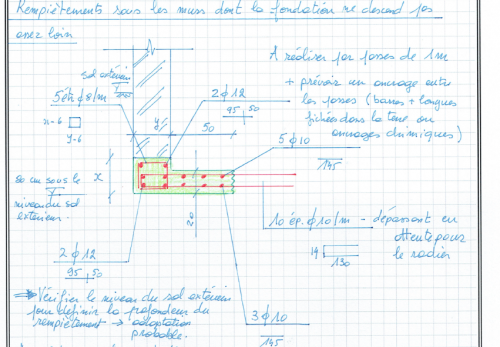 Rempiètements sous les murs dont la fondation ne descend pas
assez loin
A réaliser par passes de 1m
+ prévoir un ancrage entre
les passes (barres + longues
fichées dans la terre ou
ancrages chimiques)
sol extérieur
5 ét φ8/m
x-6
y-6
2 φ 12
95 50
y
50
5 φ 10
145
80 cm sous le
niveau du sol
extérieur.
x
20
10 ép. φ10/m - dépassant en
attente pour
le radier
14
130
2 φ 12
95 50
3 φ 10
145
⇒ Vérifier le niveau du sol extérieur
pour définir la profondeur du
rempiètement → adaptation
probable.